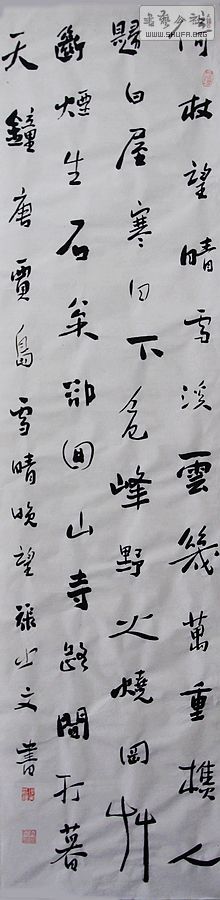 倚杖望晴雪溪雲幾萬重樵人
歸白屋寒日下危峰野火燒岡艸
斷煙生石枀卻回山寺路聞打暮
天鐘唐賈島雪晴晚望張文書
WWW.SHUFA.ORG